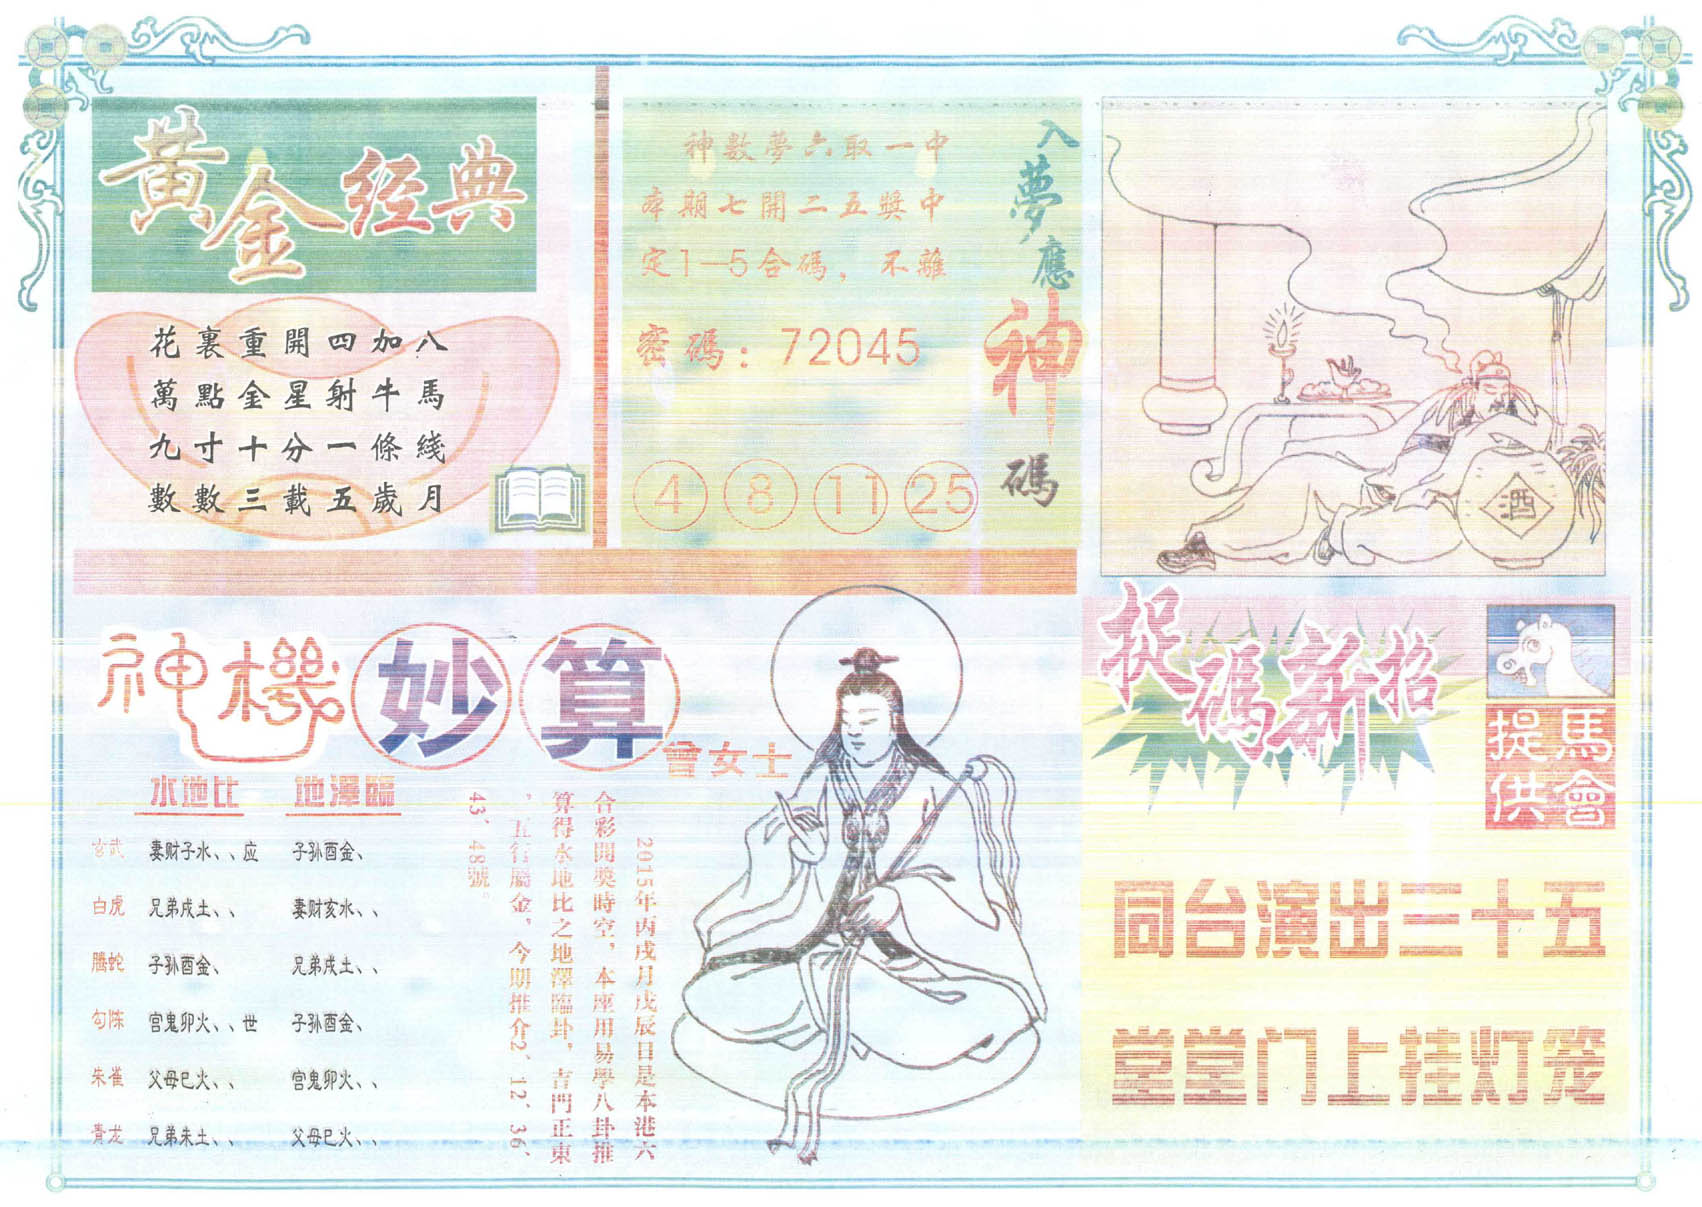 黃金经典
花裏重開四加八
萬點金星射牛馬
九寸十分一條綫
數數三載五歲月
神數夢六取一中
本期七開二五獎中
定1—5合碼，不離
密碼：72045
4 8 11 25
入夢應神碼
酒
神機妙算
曾女士
水地比 地澤臨
玄武 妻财子水、、应 子孙酉金、
白虎 兄弟戌土、、 妻财亥水、、
腾蛇 子孙酉金、 兄弟戌土、、
勾陈 官鬼卯火、、世 子孙酉金、
朱雀 父母巳火、、 官鬼卯火、、
青龙 兄弟未土、、 父母巳火、、
2015年丙戌月戊辰日是本港六
合彩開獎時空，本座用易學八卦推
算得水地比之地澤臨卦，吉門正東
，五行屬金，今期推介2、12、36、
43、48號。
捉碼新招
馬會
提供
同台演出三十五
堂堂门上挂灯笼